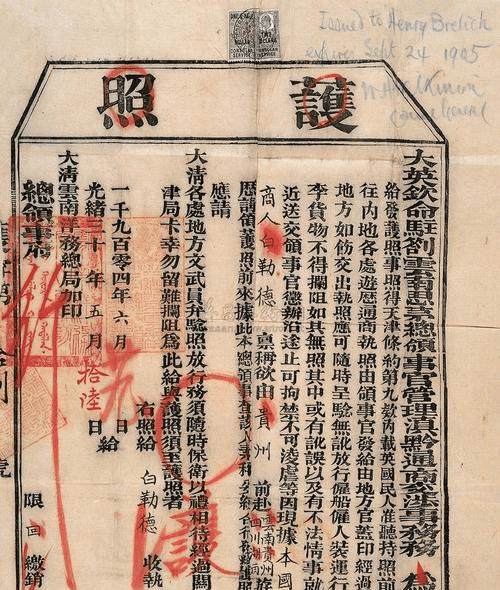 Issued to Henry Brelich
expires Sept 24 1905
Consul General
護照
大英欽命駐劄雲南思茅總領事官管理滇黔通商交涉事務 為
給發護照事照得天津條約第九款內載英國民人准聽持照前
往內地各處遊歷通商執照由領事官發給由地方官蓋印經過
地方如飭交出執照應可隨時呈驗無訛放行僱船僱人裝運行
李貨物不得攔阻如其無照其中或有訛誤以及有不法情事就
近送交領事官懲辦沿途止可拘禁不可凌虐等因現據本國
商人白勒德 稟稱欲由 貴州 前赴雲南貴州四川
歷請領護照前來據此本總領事
應請
大清各處地方文武員弁驗照放行務須隨時保衛以禮相待經過關
津局卡幸勿留難攔阻為此給與護照須至護照者
右照給 白勒德 收執
一千九百零四年六月 日給
光緒三十年五月拾陸日
大清雲南洋務總局加印
總領事府
限 回 繳銷
號
護